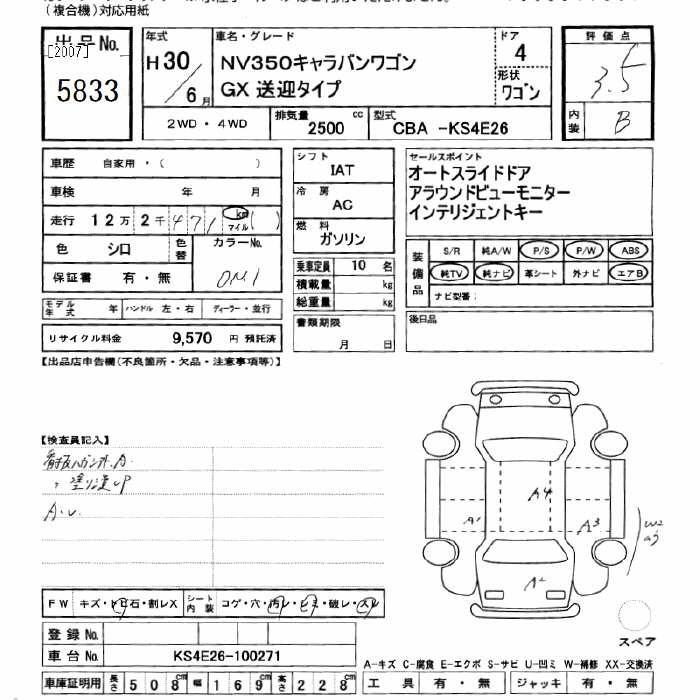 (複合機)対応用紙
出品No.
[2007]
5833
年式
H30/6月
車名・グレード
NV350キャラバンワゴン
GX 送迎タイプ
ドア
4
形状
ワゴン
評価点
3.5
内装
B
2WD・4WD
排気量
2500 cc
型式
CBA -KS4E26
車歴 自家用・( )
車検 年 月
走行 12万 2千 471 km マイル ( )
色 シロ 色替 カラーNo.
保証書 有・無 QM1
モデル年式 年 ハンドル 左・右 ディーラー・並行
リサイクル料金 9,570 円 預託済
シフト
IAT
冷房
AC
燃料
ガソリン
乗車定員 10 名
積載量 kg
総重量 kg
書類期限
月 日
セールスポイント
オートスライドドア
アラウンドビューモニター
インテリジェントキー
装備品
S/R 純A/W P/S P/W ABS
純TV 純ナビ 革シート 外ナビ エアB
ナビ型番:
後日品
【出品店申告欄(不良箇所・欠品・注意事項等)】
【検査員記入】
看板ハガシ跡 A
〃 塗り込 UP
A.U
A4
A1
A3
W2
A2
FW キズ・トビ石・割レX シート内装 コゲ・穴・汚レ・シミ・破レ・スレ
登録No.
車台No. KS4E26-100271
スペア
A-キズ C-腐食 E-エクボ S-サビ U-凹ミ W-補修 XX-交換済
車庫証明用 長さ 508cm 幅 169cm 高さ 228cm
工具 有・無 ジャッキ 有・無